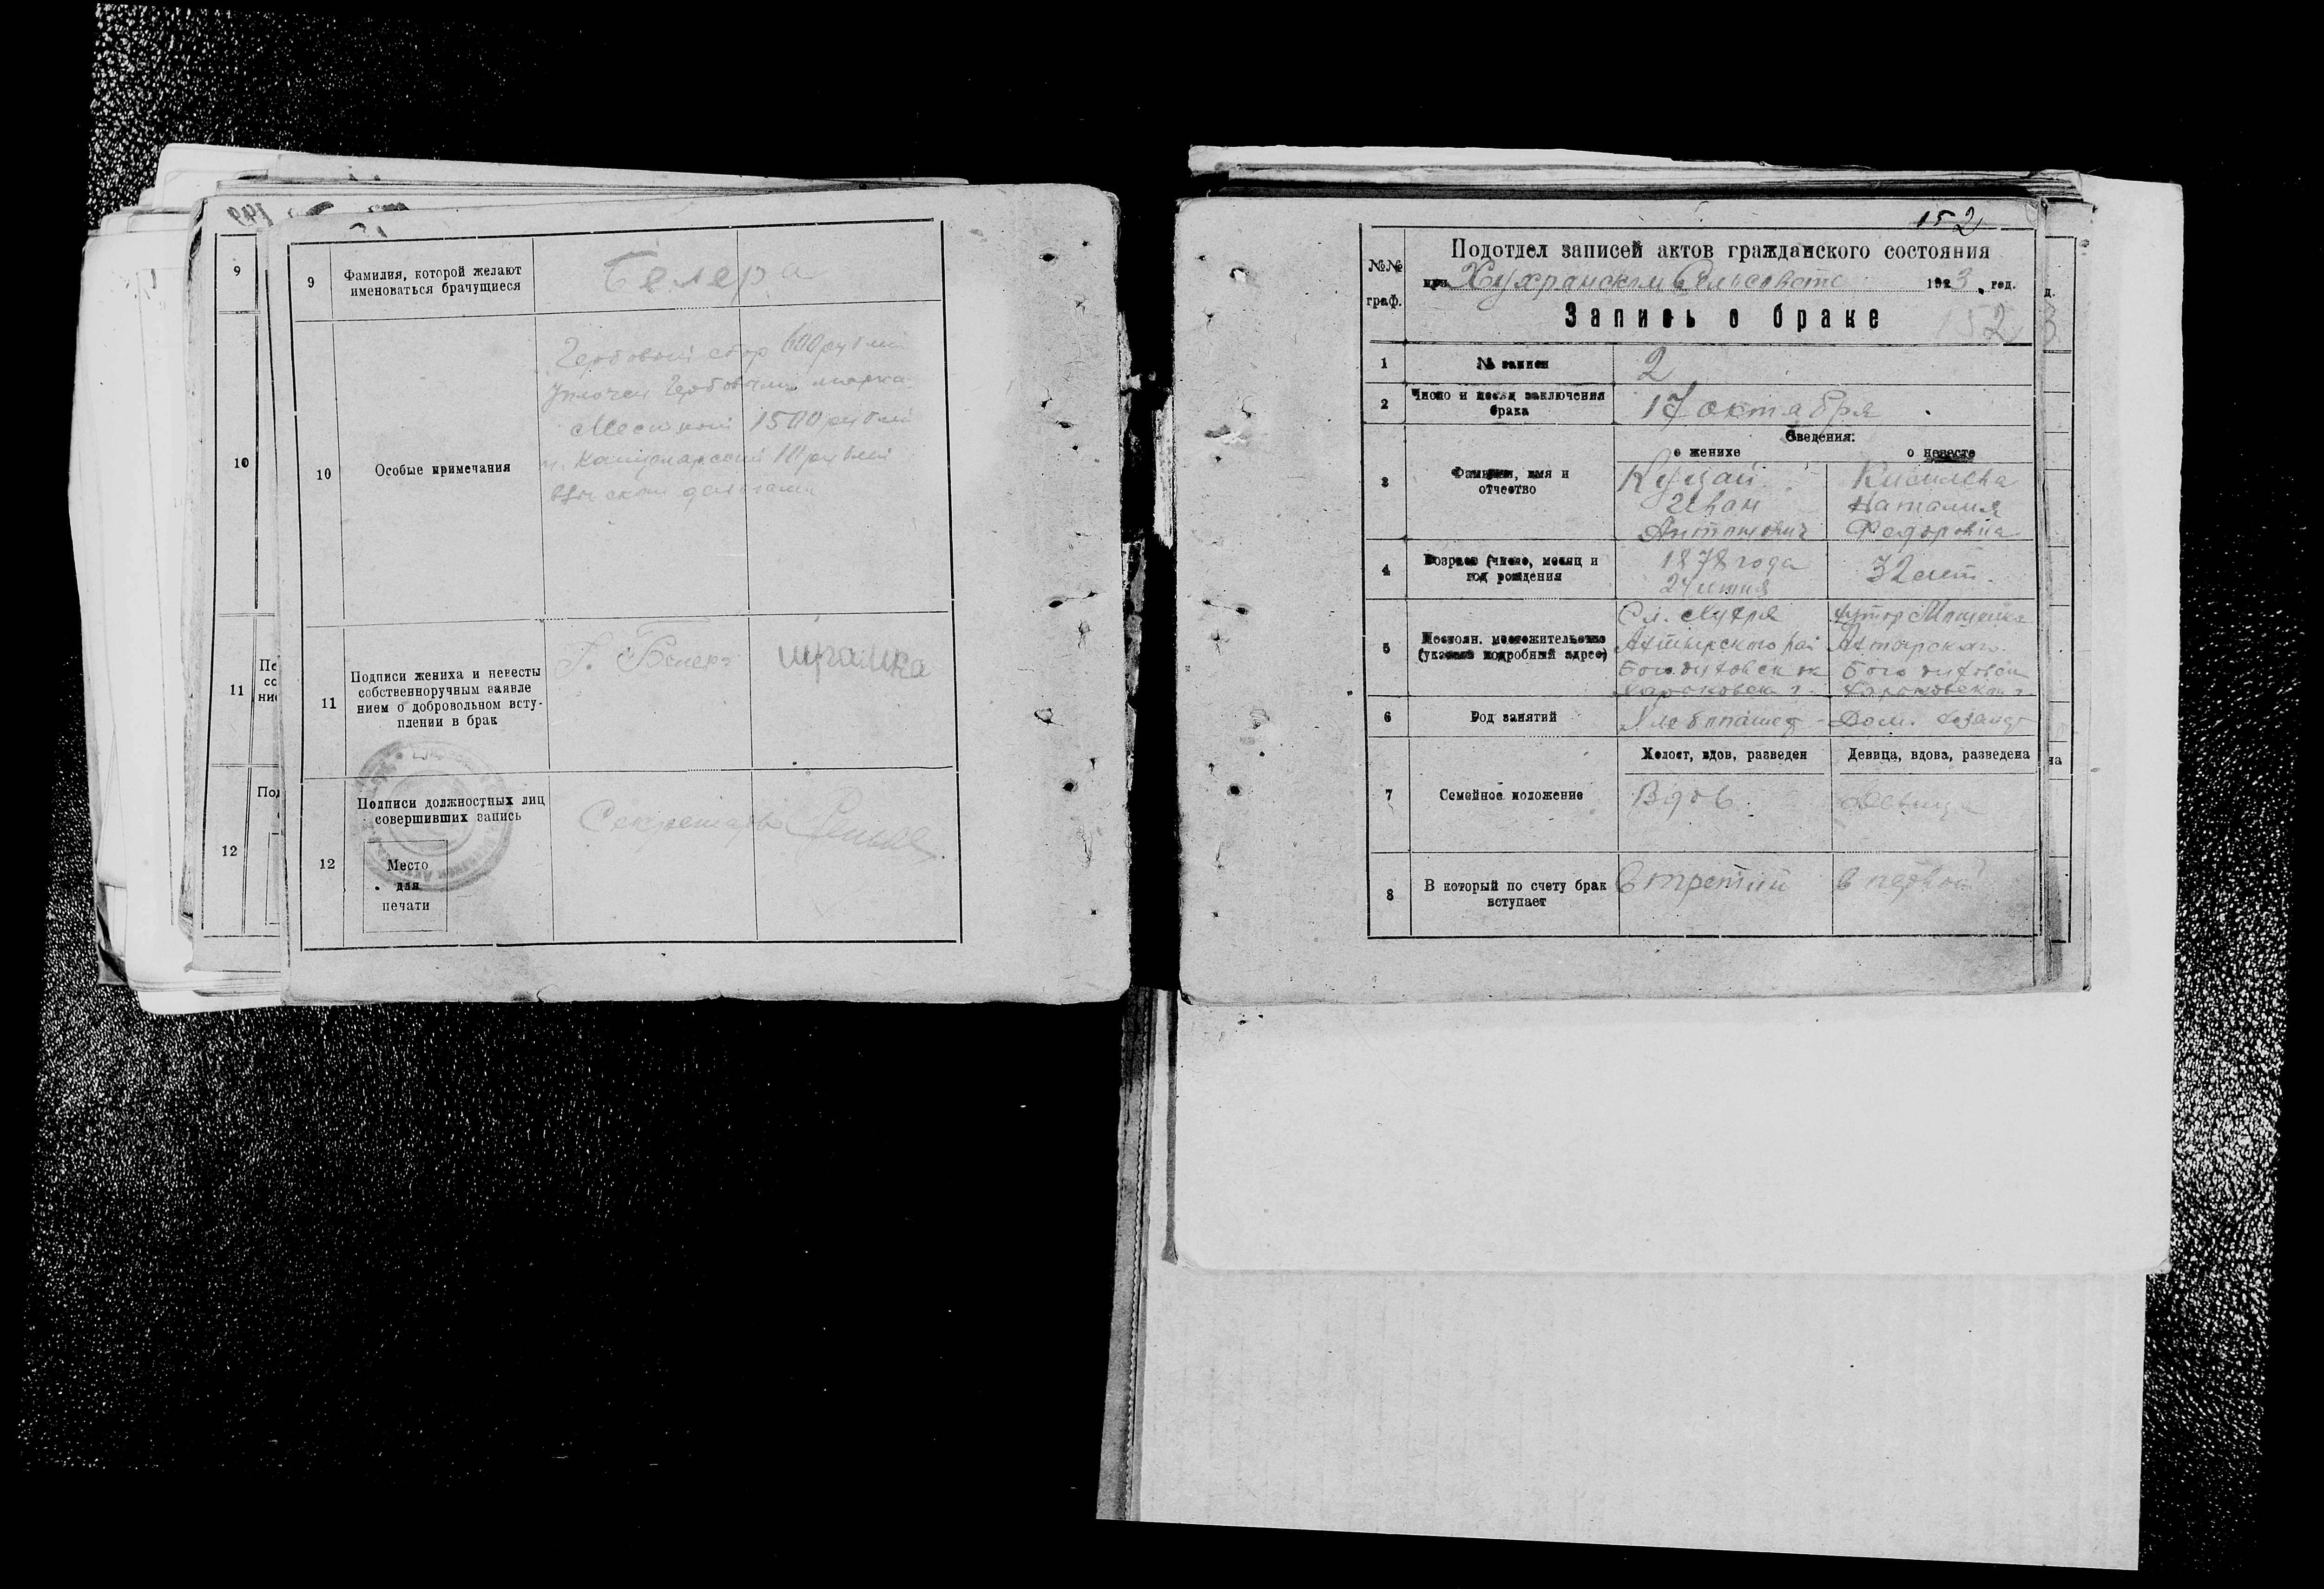 149
9
10
11
12
9
Фамилия, которой желают
именоваться брачущиеся
Белера
10
Особые примечания
Гербовый сбор 600 рублей
уплочен Гербовыми марка
Местный 1500 рублей
и Канцелярский 10 рублей
взыскан деньгами
11
Подписи жениха и невесты
собственноручным заявле
нием о добровольном всту-
плении в брак
12
Подписи должностных лиц
совершивших запись
Место
для
печати
Секретарь
152
№№
граф.
Подотдел записей актов гражданского состояния
при Хухранском Сельсовете 1923 год.
Запись о браке
152
1
№ записи
2
2
Число и месяц заключения
брака
17 октября
Сведения:
о женихе
о невесте
3
Фамилия, имя и
отчество
Куцай
Иван
Антонович
Наталия
Федоровна
4
Возраст (число, месяц и
год рождения
1878 года
32 лет.
5
Постоян. местожительство
(указать подробный адрес)
Ахтырского рай
Богодуховск ок
Харьковск г.
хутор
Ахтырского
Богодуховск
Харьковской г.
6
Род занятий
Хлебопашец
Дом. хозяйс
7
Семейное положение
Холост, вдов, разведен
Девица, вдова, разведена
Вдов
Девица
8
В который по счету брак
вступает
в третий
в первый